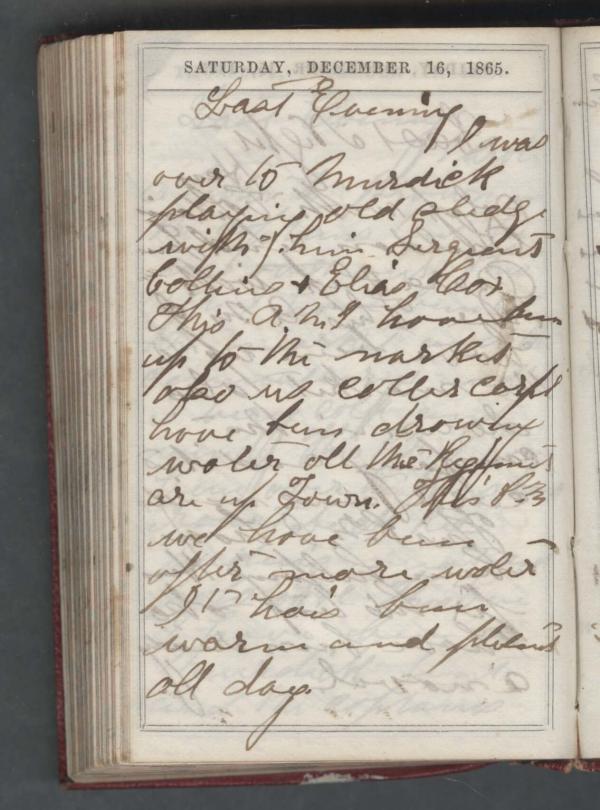 SATURDAY, DECEMBER 16, 1865.
Last Evening
I was
over to Murdick
playing old sledge
with him Sergeant
Collins & Elias Cox
This A.M I have bin
up to the market
also us
have bun drawing
water all the Regiments
are up Town. This P.M
we have bun
after more water
IT has bun
warm and pleasant
all day.